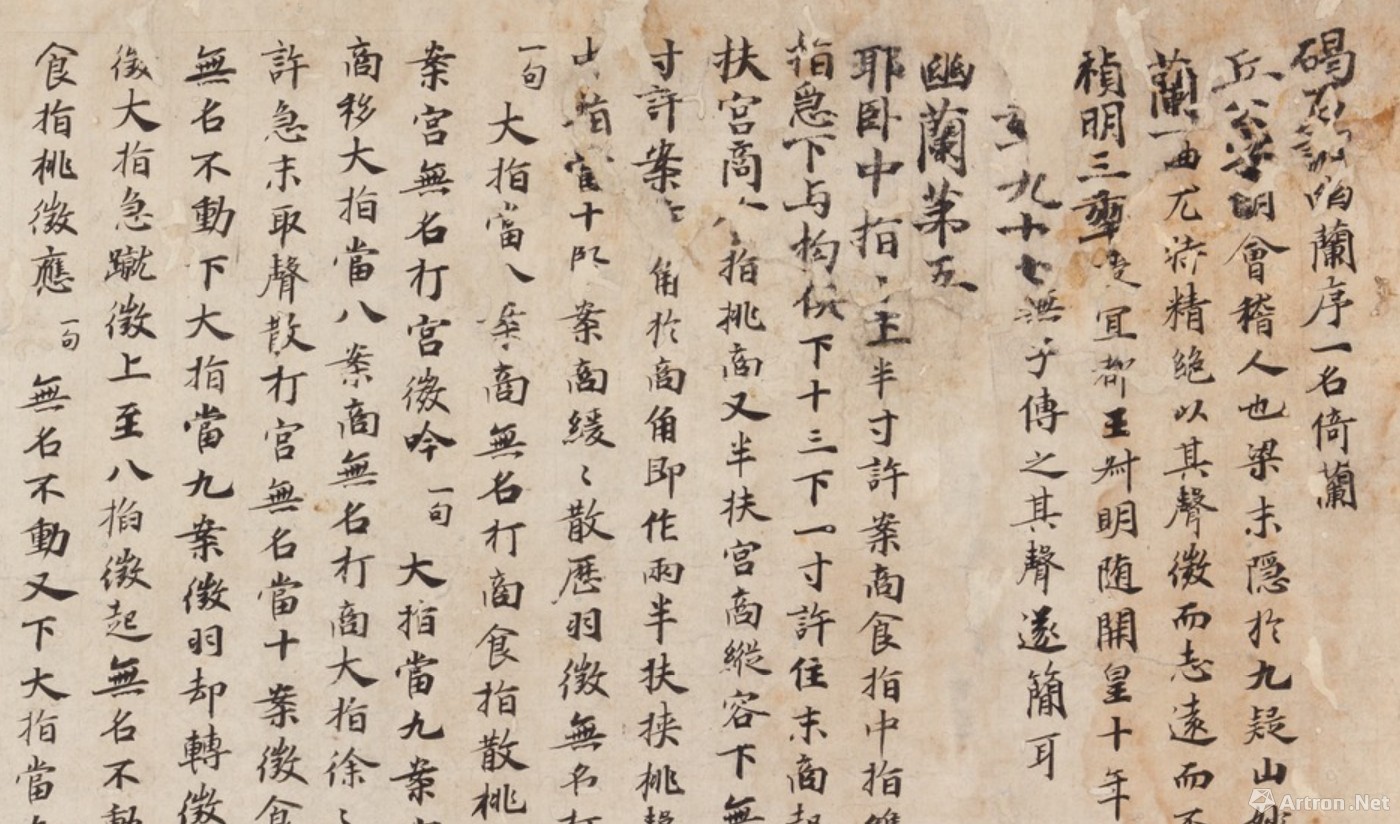 碣石調幽蘭序一名倚蘭
丘公字明會稽人也梁末隱於九疑山妙
蘭一曲尤特精絶以其聲微而志遠而不
禎明三年 宜都王叔明随開皇十年
九十七無子傳之其聲遂簡耳
幽蘭苐五
耶卧中指 半寸許案商食指中指雙
指急下与拘俱下十三下一寸許住末商起
扶宮商 指挑商又半扶宮商縱容下無
寸許案 角於商角即作兩半扶挟挑聲
指 十 案商緩〻散歷羽徵無名打
一句 大指當八案商無名打商食指散挑
案宮無名打宮徵吟 一句 大指當九案
商移大指當八案商無名打商大指徐〻
許急末取聲散打宮無名當十案徵食
無名不動下大指當九案徵羽却轉徵
徵大指急蹴徵上至八 徵起無名不動
食指挑徵應 一句 無名不動又下大指當
Artron.Net